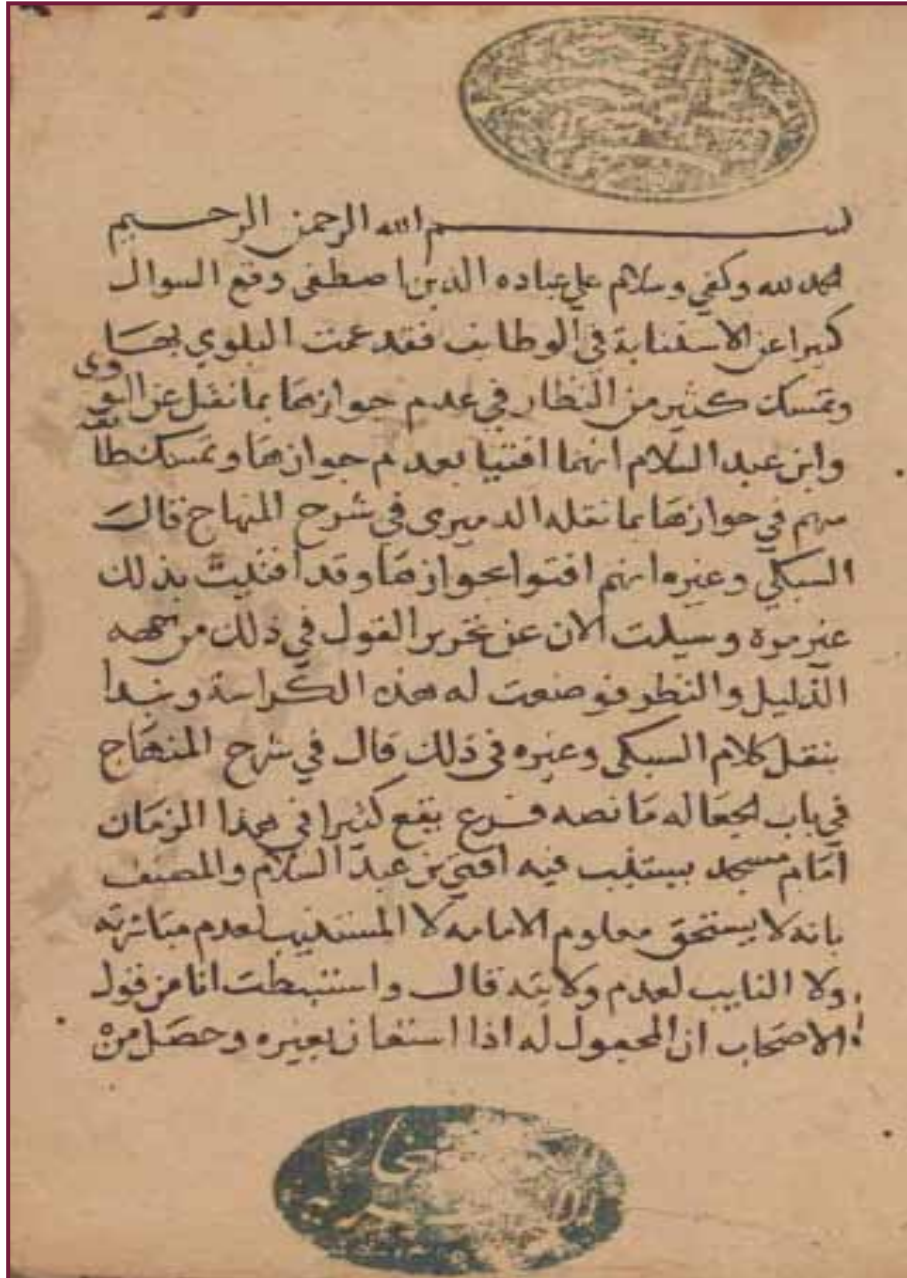 بسم الله الرحمن الرحيم
الحمد لله وكفي وسلام علي عباده الذين اصطفى وقع السوال
كثيرا عن الاستنابة في الوظايف فقد عمت البلوي بها
وتمسك كثير من النظار في عدم جوازها بما نقل عن النووى
وابن عبد السلام انهما افتيا بعدم جوازها وتمسك طائفة
منهم في جوازها بما نقله الدميرى في شرح المنهاج قال
السبكي وغيره انهم افتوا بجوازها وقد افتيت بذلك
غير مره وسيلت الان عن تحرير القول في ذلك من جهه
الدليل والنظر فوضعت له هذه الكراسة ونبدا
بنقل كلام السبكى وغيره فى ذلك قال في شرح المنهاج
في باب الجعاله ما نصه فرع يقع كثيرا في هذا الزمان
امام مسجد يستنيب فيه افتى بن عبد السلام والمصنف
بانه لا يستحق معلوم الامامه لا المستنيب لعدم مباشرته
ولا النايب لعدم ولايته قال واستنبطت انا من قول
الاصحاب ان المجعول له اذا استعان بغيره وحصل من